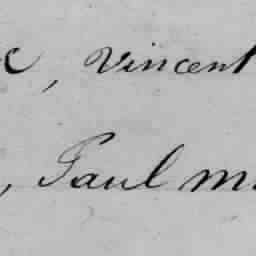 , Vincent
, Paul m